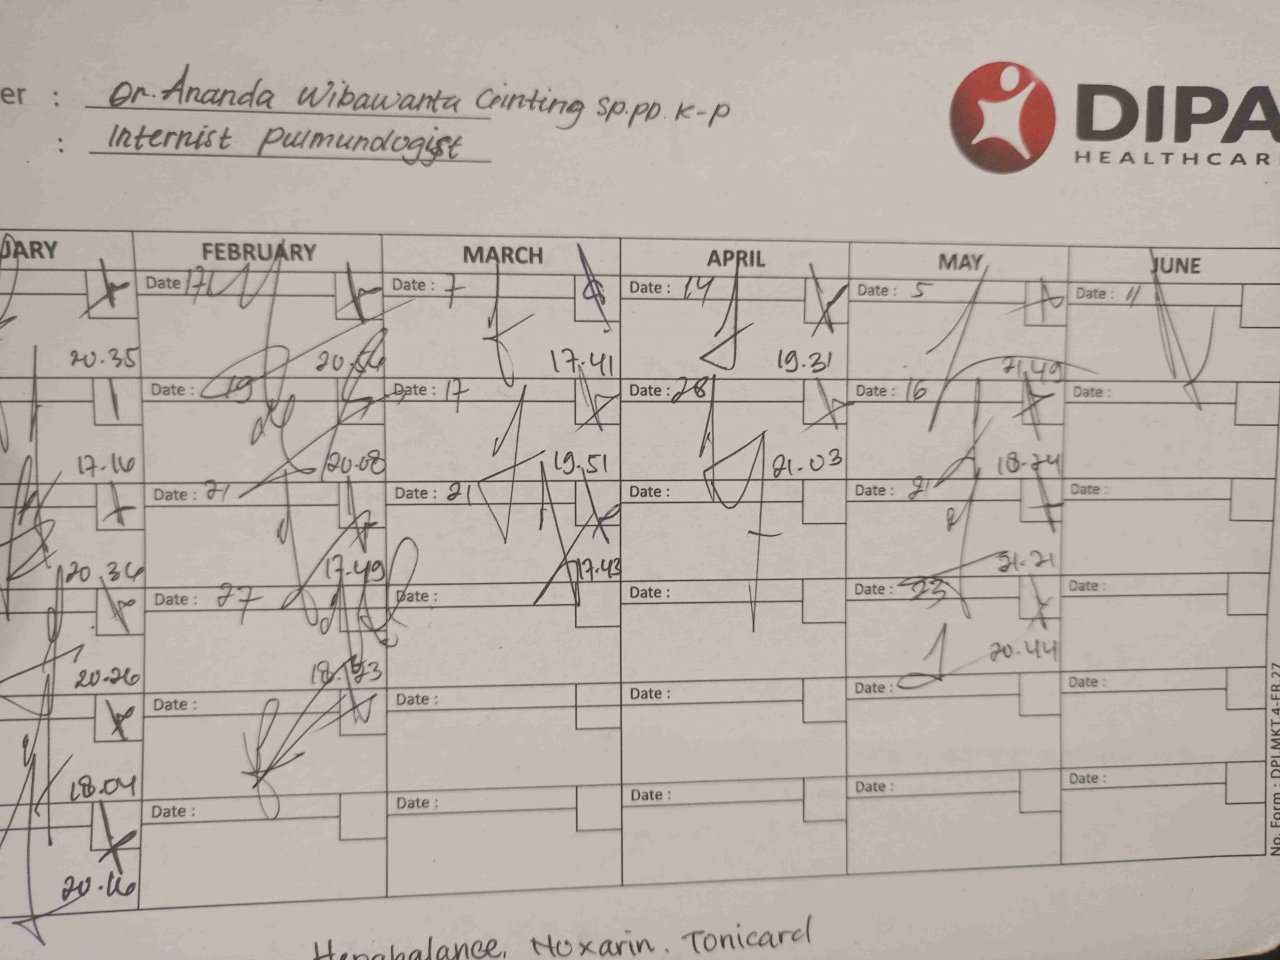 er : Dr. Ananda Wibawanta Ginting Sp.pp. K-P
: Internist Pulmundologist
DIPA
HEALTHCAR
UARY FEBRUARY MARCH APRIL MAY JUNE
Date : 17 Date : 7 Date : 14 Date : 5 Date : 11
20.35 20.54 17.41 19.31 21.49
Date : 19 Date : 17 Date : 28 Date : 16 Date :
17.16 20.08 19.51 21.03 18.24
Date : 21 Date : 21 Date : Date : 21 Date :
20.36 17.49 17.43 21.21
Date : 27 Date : Date : Date : 23 Date :
20.26 18.53 20.44
Date : Date : Date : Date : Date :
18.04
Date : Date : Date : Date : Date :
20.16
Hepabalance, Noxarin, Tonicard
No. Form : DPI.MKT.4-FR.27